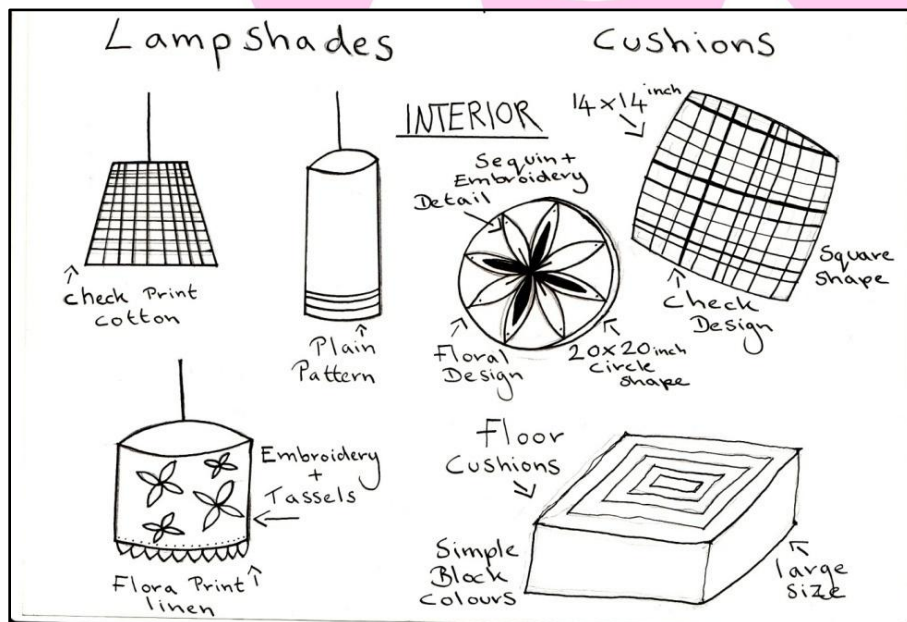 Lampshades
Cushions
INTERIOR
14x14 inch
Sequin +
Embroidery
Detail
Check Print
Cotton
Plain
Pattern
Floral
Design
20x20 inch
Circle
Shape
Check
Design
Square
Shape
Embroidery
+
Tassels
Flora Print
linen
Floor
Cushions
Simple
Block
Colours
large
size